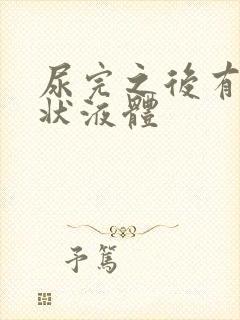 尿完之後有
狀液體
予篤